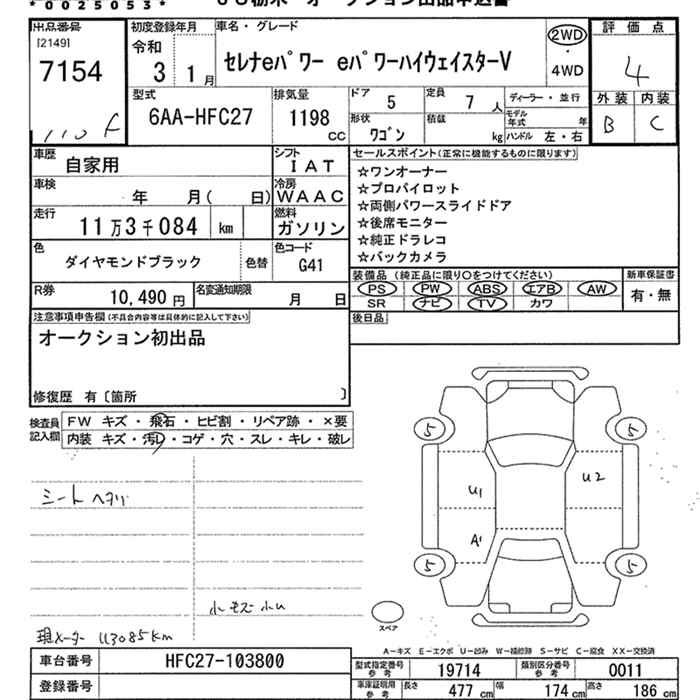 *0025053*
出品番号
[2149]
7154
110 F
初度登録年月
令和
3 1月
車名・グレード
セレナeパワー eパワーハイウェイスターV
2WD
・
4WD
評価点
4
外装 内装
B C
型式
6AA-HFC27
排気量
1198 cc
ドア 5
定員 7 人
ディーラー・並行
形状 ワゴン
積載 kg
モデル年式 年
ハンドル 左・右
車歴 自家用
シフト IAT
車検 年 月( 日)
冷房 WAAC
走行 11万3千084 km
燃料 ガソリン
色 ダイヤモンドブラック
色替
色コード G41
R券 10,490円
名変通知期限 月 日
セールスポイント(正常に機能するものに限ります)
☆ワンオーナー
☆プロパイロット
☆両側パワースライドドア
☆後席モニター
☆純正ドラレコ
☆バックカメラ
装備品(純正品に限り〇をつけてください)
新車保証書
PS PW ABS エアB AW
SR ナビ TV カワ
有・無
後日品
注意事項申告欄(不具合内容等は具体的に記入して下さい)
オークション初出品
修復歴 有〔箇所 〕
検査員記入欄
FW キズ・飛石・ヒビ割・リペア跡・×要
内装 キズ・汚レ・コゲ・穴・スレ・キレ・破レ
シートヘタリ
現メーター 113085km
5 5
U1 U2
A1
5 5
スペア
A-キズ E-エクボ U-凹み W-補修跡 S-サビ C-腐食 XX-交換済
車台番号 HFC27-103800
登録番号
型式指定番号 参考 19714
類別区分番号 参考 0011
車庫証明用 参考 長さ 477 cm 幅 174 cm 高さ 186 cm